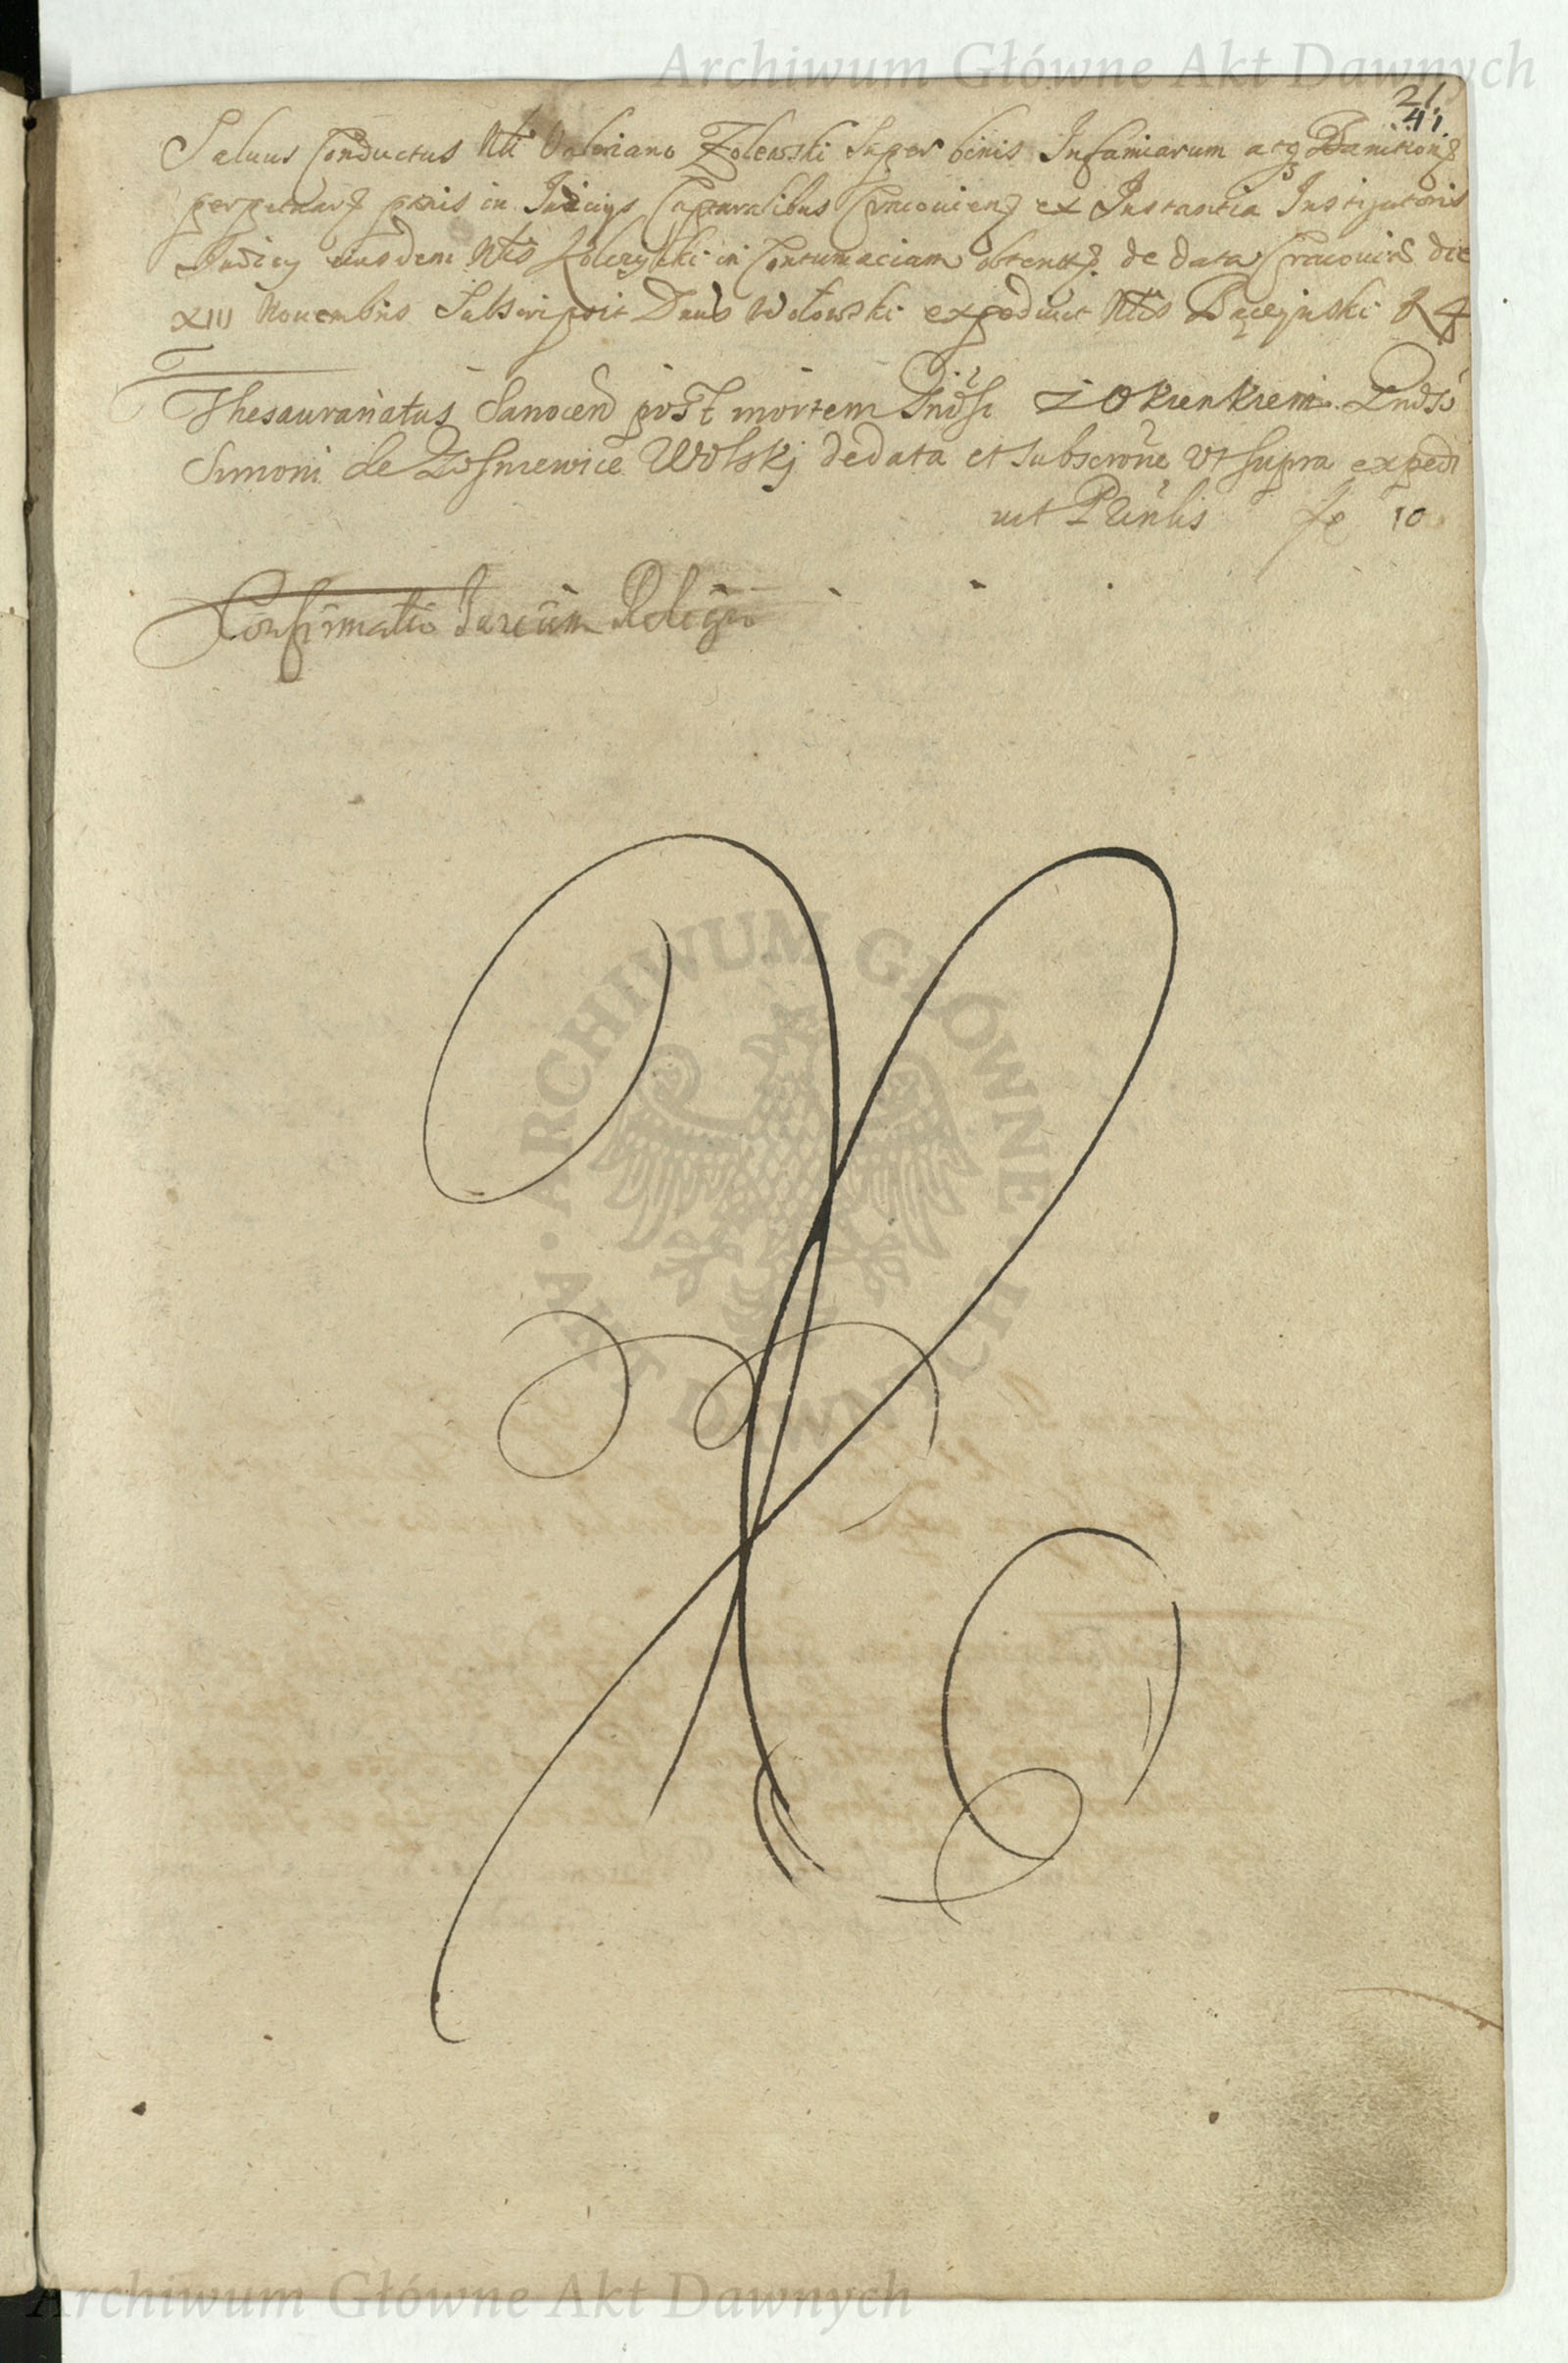 Archiwum Główne Akt Dawnych
21
41
Saluus Conductus Nli Valeriano Zolewski super binis Infamiarum atq Bannition
perpetuar pœnis in Iudicijs Capturalibus Cracouien ex Instantia Instigatoris
Iudicy eiusdem Nlis in Contumaciam obtent de data Cracouiæ die
XIII Nouembris Subscripsit Dnus Wołowski expediuit Nlis
Thesaurariatus Sanocen post mortem
Simoni de Wolskj de data et subscrone vt supra expedi
uit 10
Confirmatio Iurium Religio
ARCHIWUM GŁÓWNE
AKT DAWNYCH
Archiwum Główne Akt Dawnych